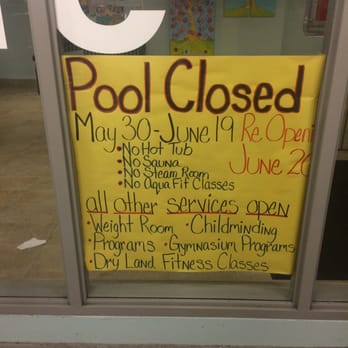 Pool Closed
May 30-June 19 Re Openi
June 20
• No Hot Tub
• No Sauna
• No Steam Room
• No Aqua Fit Classes
all other services open
• Weight Room • Childminding
• Programs • Gymnasium Programs
• Dry Land Fitness Classes